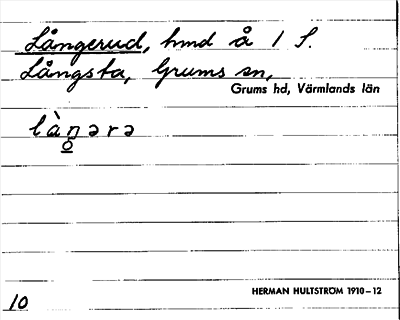 Långerud, hmd å 1 S.
Långsta, Grums sn,
Grums hd, Värmlands län
làn̥ərə
HERMAN HULTSTRÖM 1910–12
10